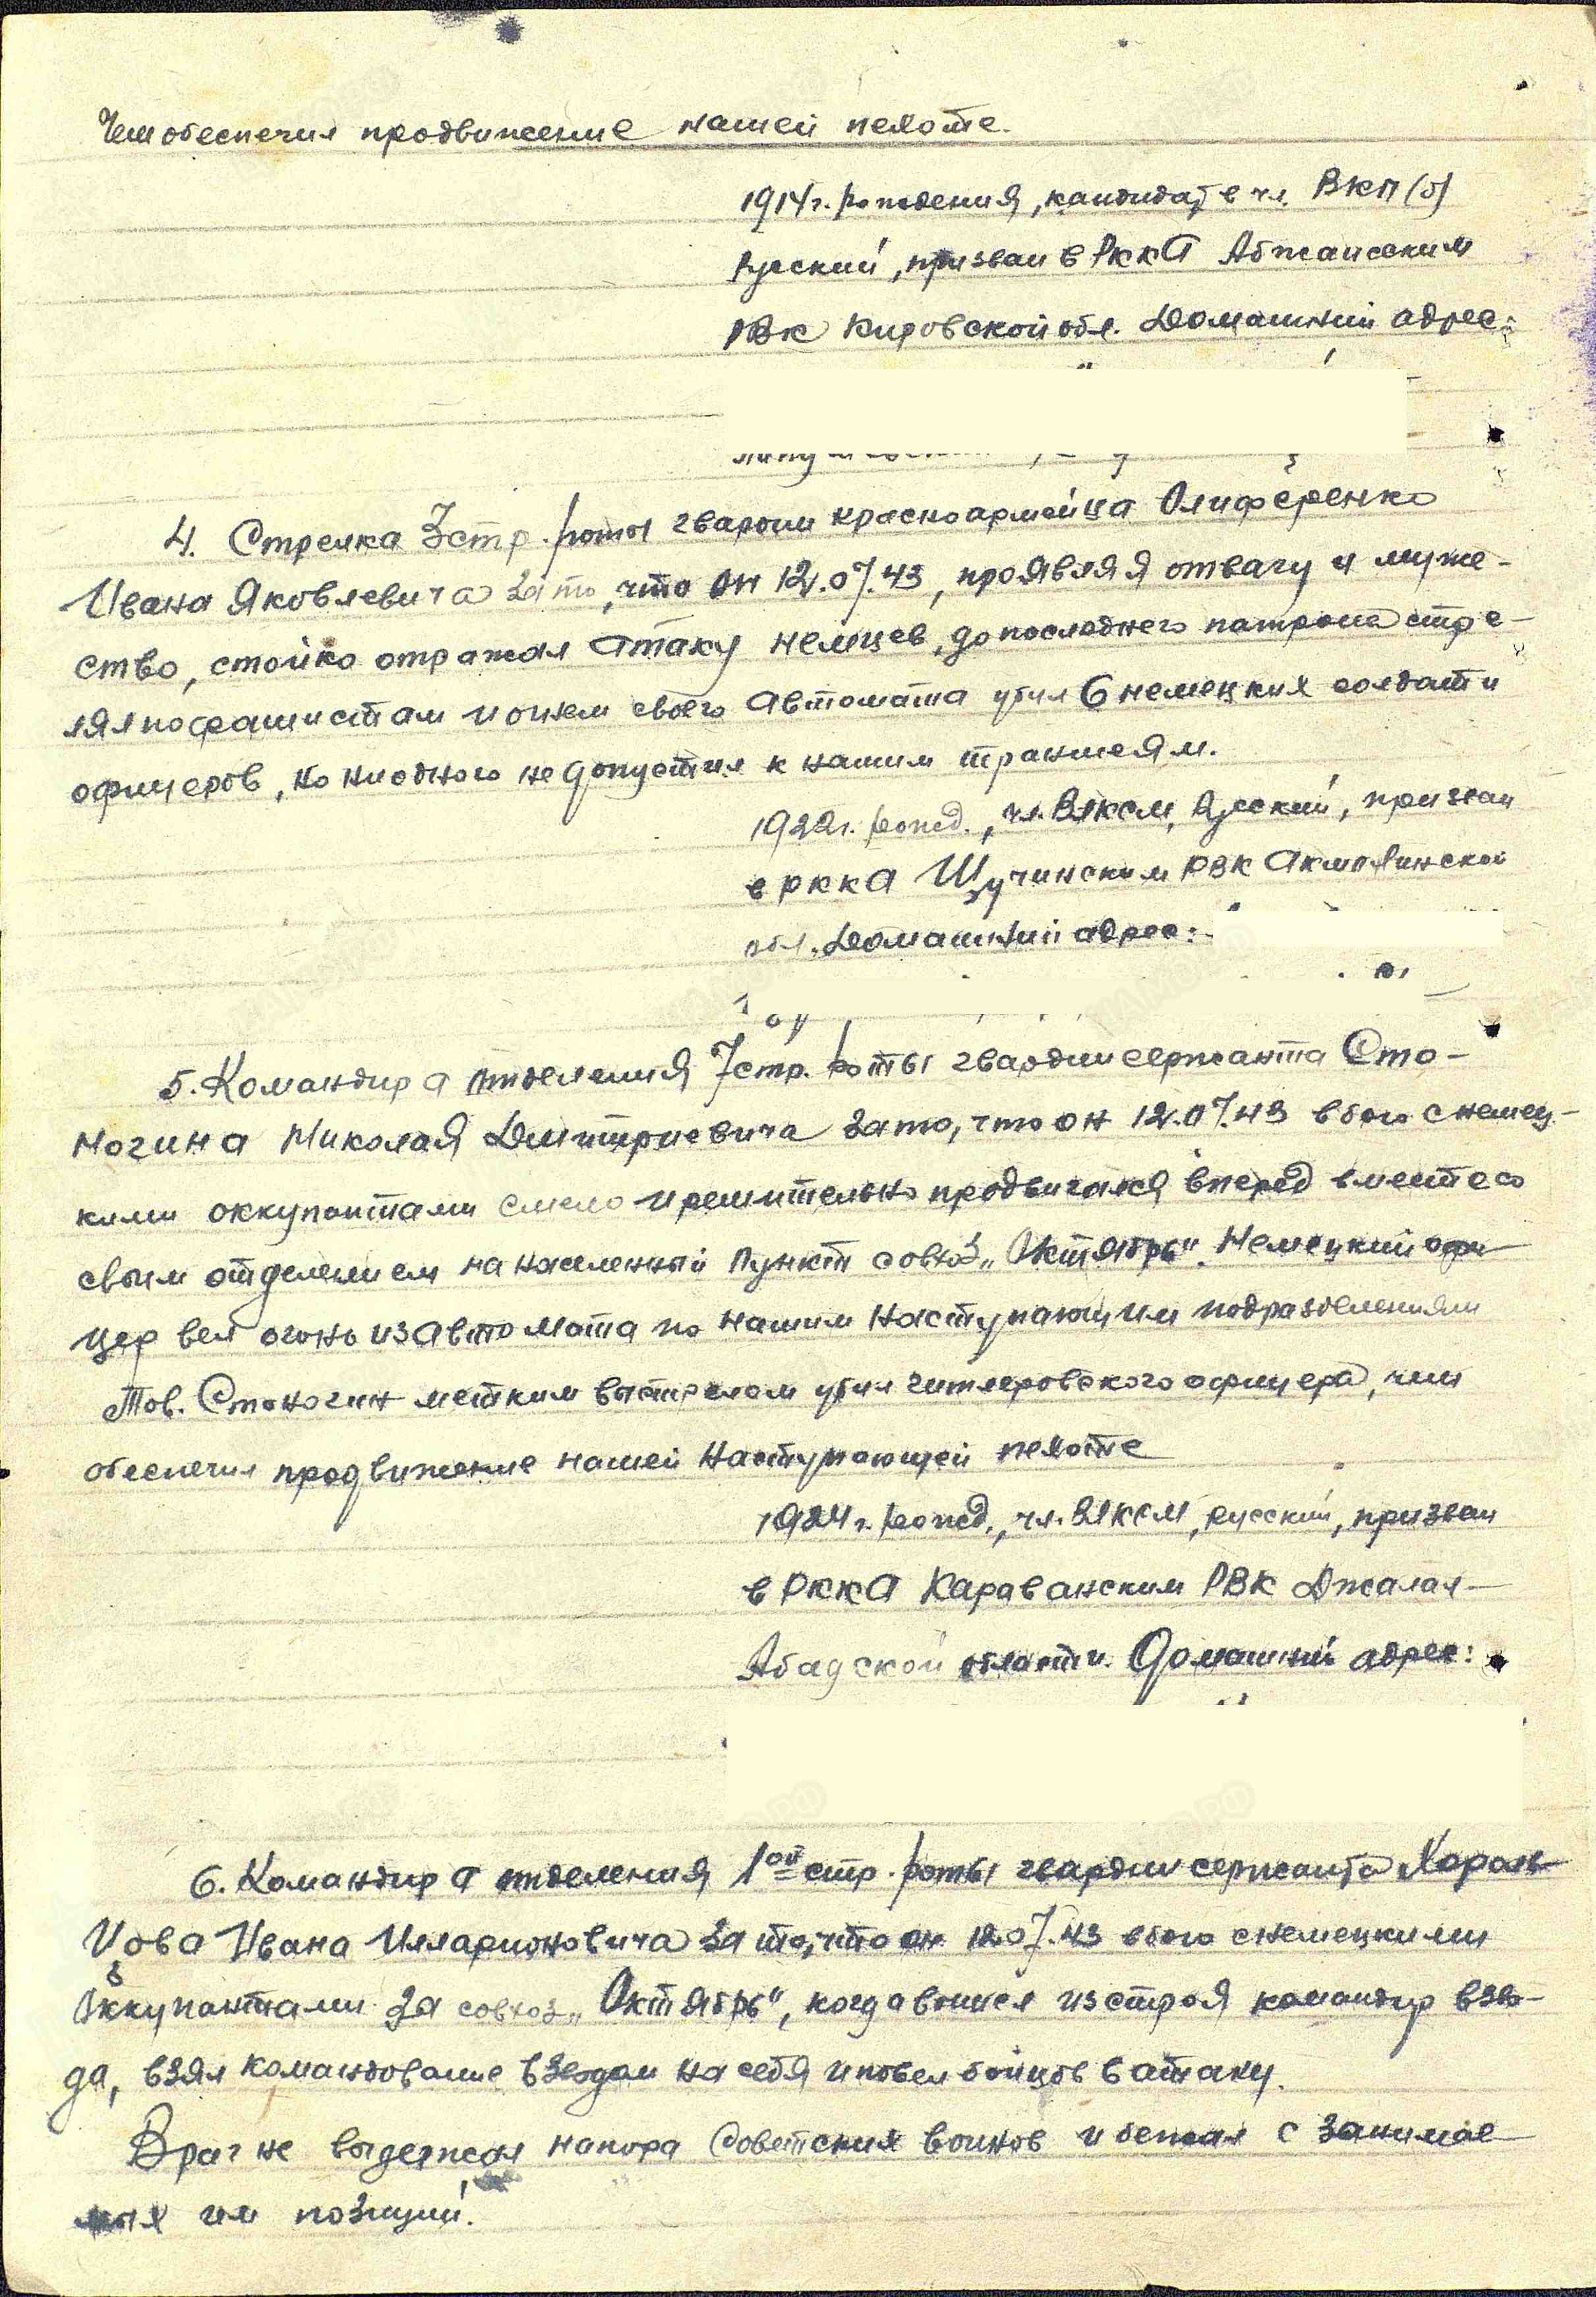 Чем обеспечил продвижение нашей пехоте.
1914 г. рождения, кандидат в чл. ВКП(б)
Русский, призван в РККА
РВК Кировской обл. Домашний адрес:
4. Стрелка 3 стр. роты гвардии красноармейца Олиференко
Ивана Яковлевича за то, что он 12.07.43, проявляя отвагу и муже-
ство, стойко отражал атаку немцев, до последнего патрона стре-
лял по фашистам и огнем своего автомата убил 6 немецких солдат и
офицеров, но ни одного не допустил к нашим траншеям.
1922 г. рожд., чл. ВЛКСМ, Русский, призван
в РККА Щучинским РВК Акмолинской
обл. Домашний адрес:
5. Командира отделения 7 стр. роты гвардии сержанта Сто-
ногина Николая Дмитриевича за то, что он 12.07.43 в бою с немец-
кими оккупантами смело и решительно продвигался вперед вместе со
своим отделением на населенный пункт совхоз „Октябрь". Немецкий офи-
цер вел огонь из автомата по нашим наступающим подразделениям
Тов. Стоногин метким выстрелом убил гитлеровского офицера, чем
обеспечил продвижение нашей наступающей пехоте
1924 г. рожд., чл. ВЛКСМ, русский, призван
в РККА Караванским РВК Джалал-
Абадской области. Домашний адрес:
6. Командира отделения 1ой стр. роты гвардии сержанта Хараль-
Ивана Илларионовича за то, что он 12.07.43 в бою с немецкими
оккупантами за совхоз „Октябрь", когда вышел из строя командир взво-
да, взял командование взводом на себя и повел бойцов в атаку.
Враг не выдержал напора Советских воинов и бежал с занимае-
мых им позиций.